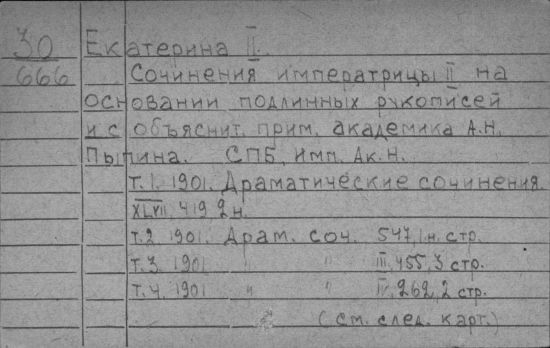 30 Екатерина II.
666 Сочинения императрицы II на
основании подлинных рукописей
и с объяснит. прим. академика А.Н.
Пыпина. СПБ, Имп. Ак. Н.
т. 1. 1901. Драматические сочинения.
XLVII, 419 2 н.
т. 2 1901. Драм. соч. 547, 1 н. стр.
т. 3. 1901 " " III, 455, 3 стр.
т. 4. 1901 " " IV, 262, 2 стр.
(см. след. карт.)